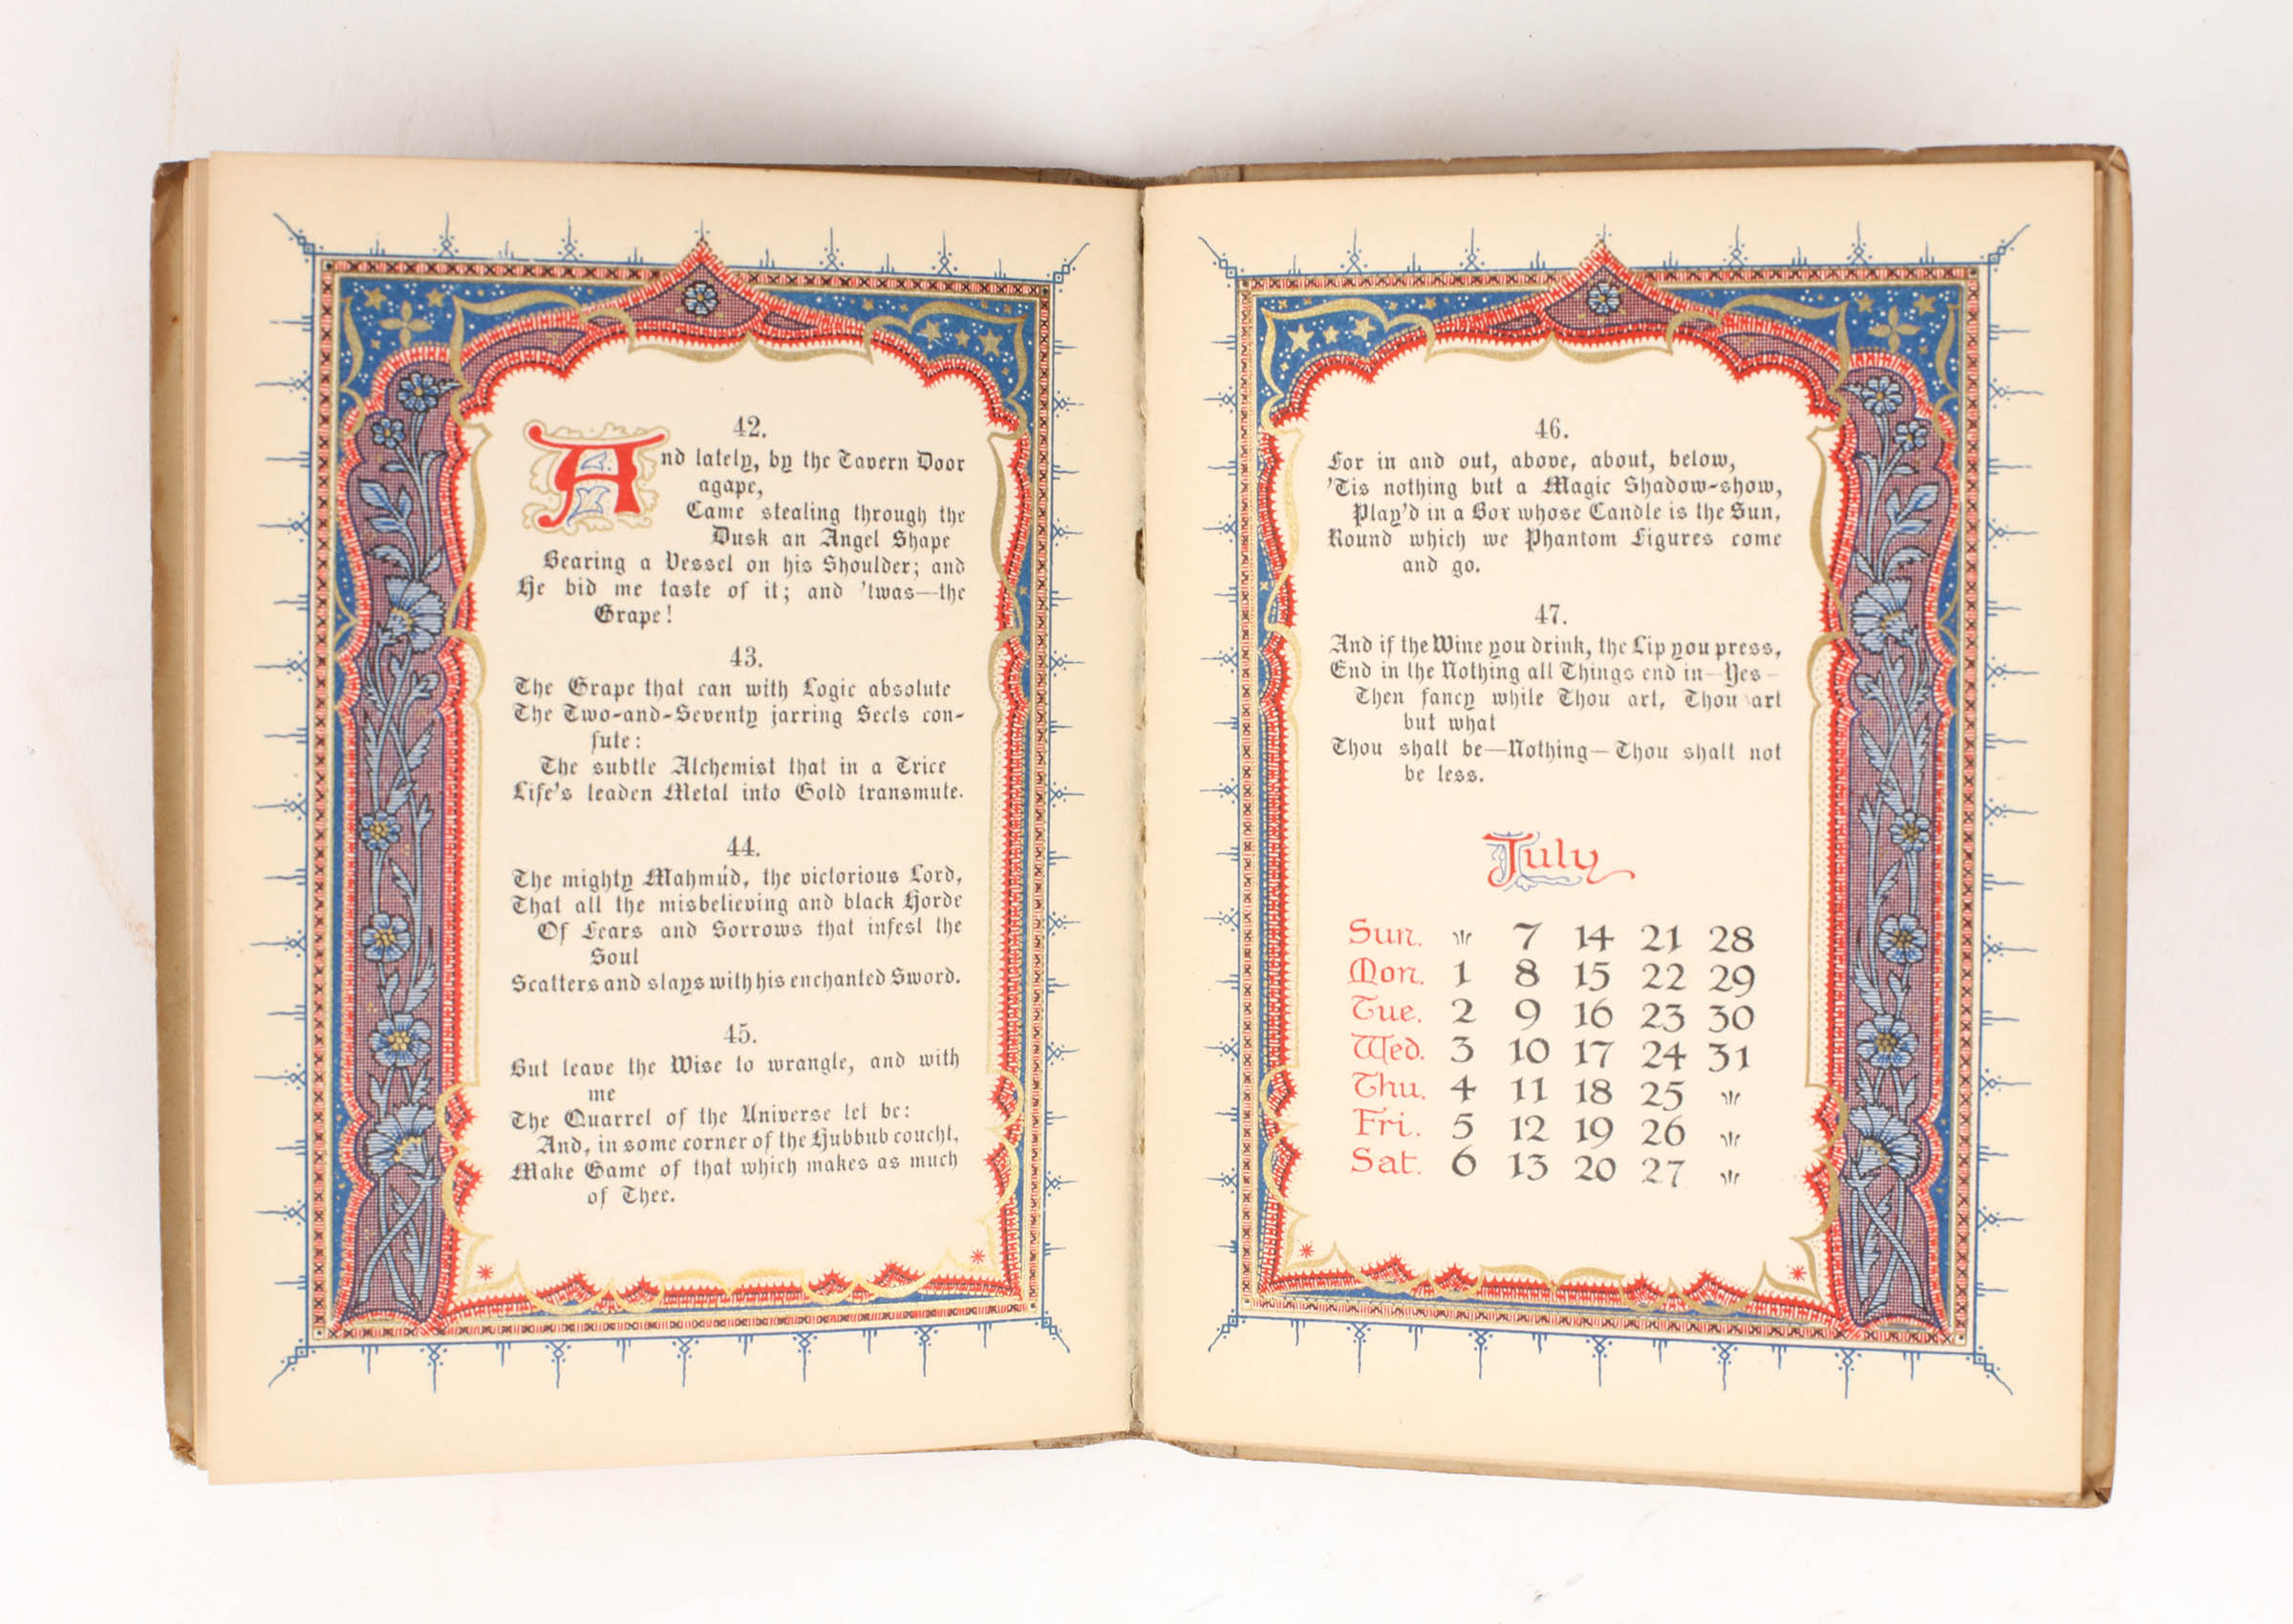 42.
And lately, by the Tavern Door
agape,
Came stealing through the
Dusk an Angel Shape
Bearing a Vessel on his Shoulder; and
He bid me taste of it; and 'twas—the
Grape!
43.
The Grape that can with Logic absolute
The Two-and-Seventy jarring Sects con-
fute:
The subtle Alchemist that in a Trice
Life's leaden Metal into Gold transmute.
44.
The mighty Mahmúd, the victorious Lord,
That all the misbelieving and black Horde
Of Fears and Sorrows that infest the
Soul
Scatters and slays with his enchanted Sword.
45.
But leave the Wise to wrangle, and with
me
The Quarrel of the Universe let be:
And, in some corner of the Hubbub coucht,
Make Game of that which makes as much
of Thee.
46.
For in and out, above, about, below,
'Tis nothing but a Magic Shadow-show,
Play'd in a Box whose Candle is the Sun,
Round which we Phantom Figures come
and go.
47.
And if the Wine you drink, the Lip you press,
End in the Nothing all Things end in—Yes—
Then fancy while Thou art, Thou art
but what
Thou shalt be—Nothing—Thou shalt not
be less.
July
Sun. 7 14 21 28
Mon. 1 8 15 22 29
Tue. 2 9 16 23 30
Wed. 3 10 17 24 31
Thu. 4 11 18 25
Fri. 5 12 19 26
Sat. 6 13 20 27